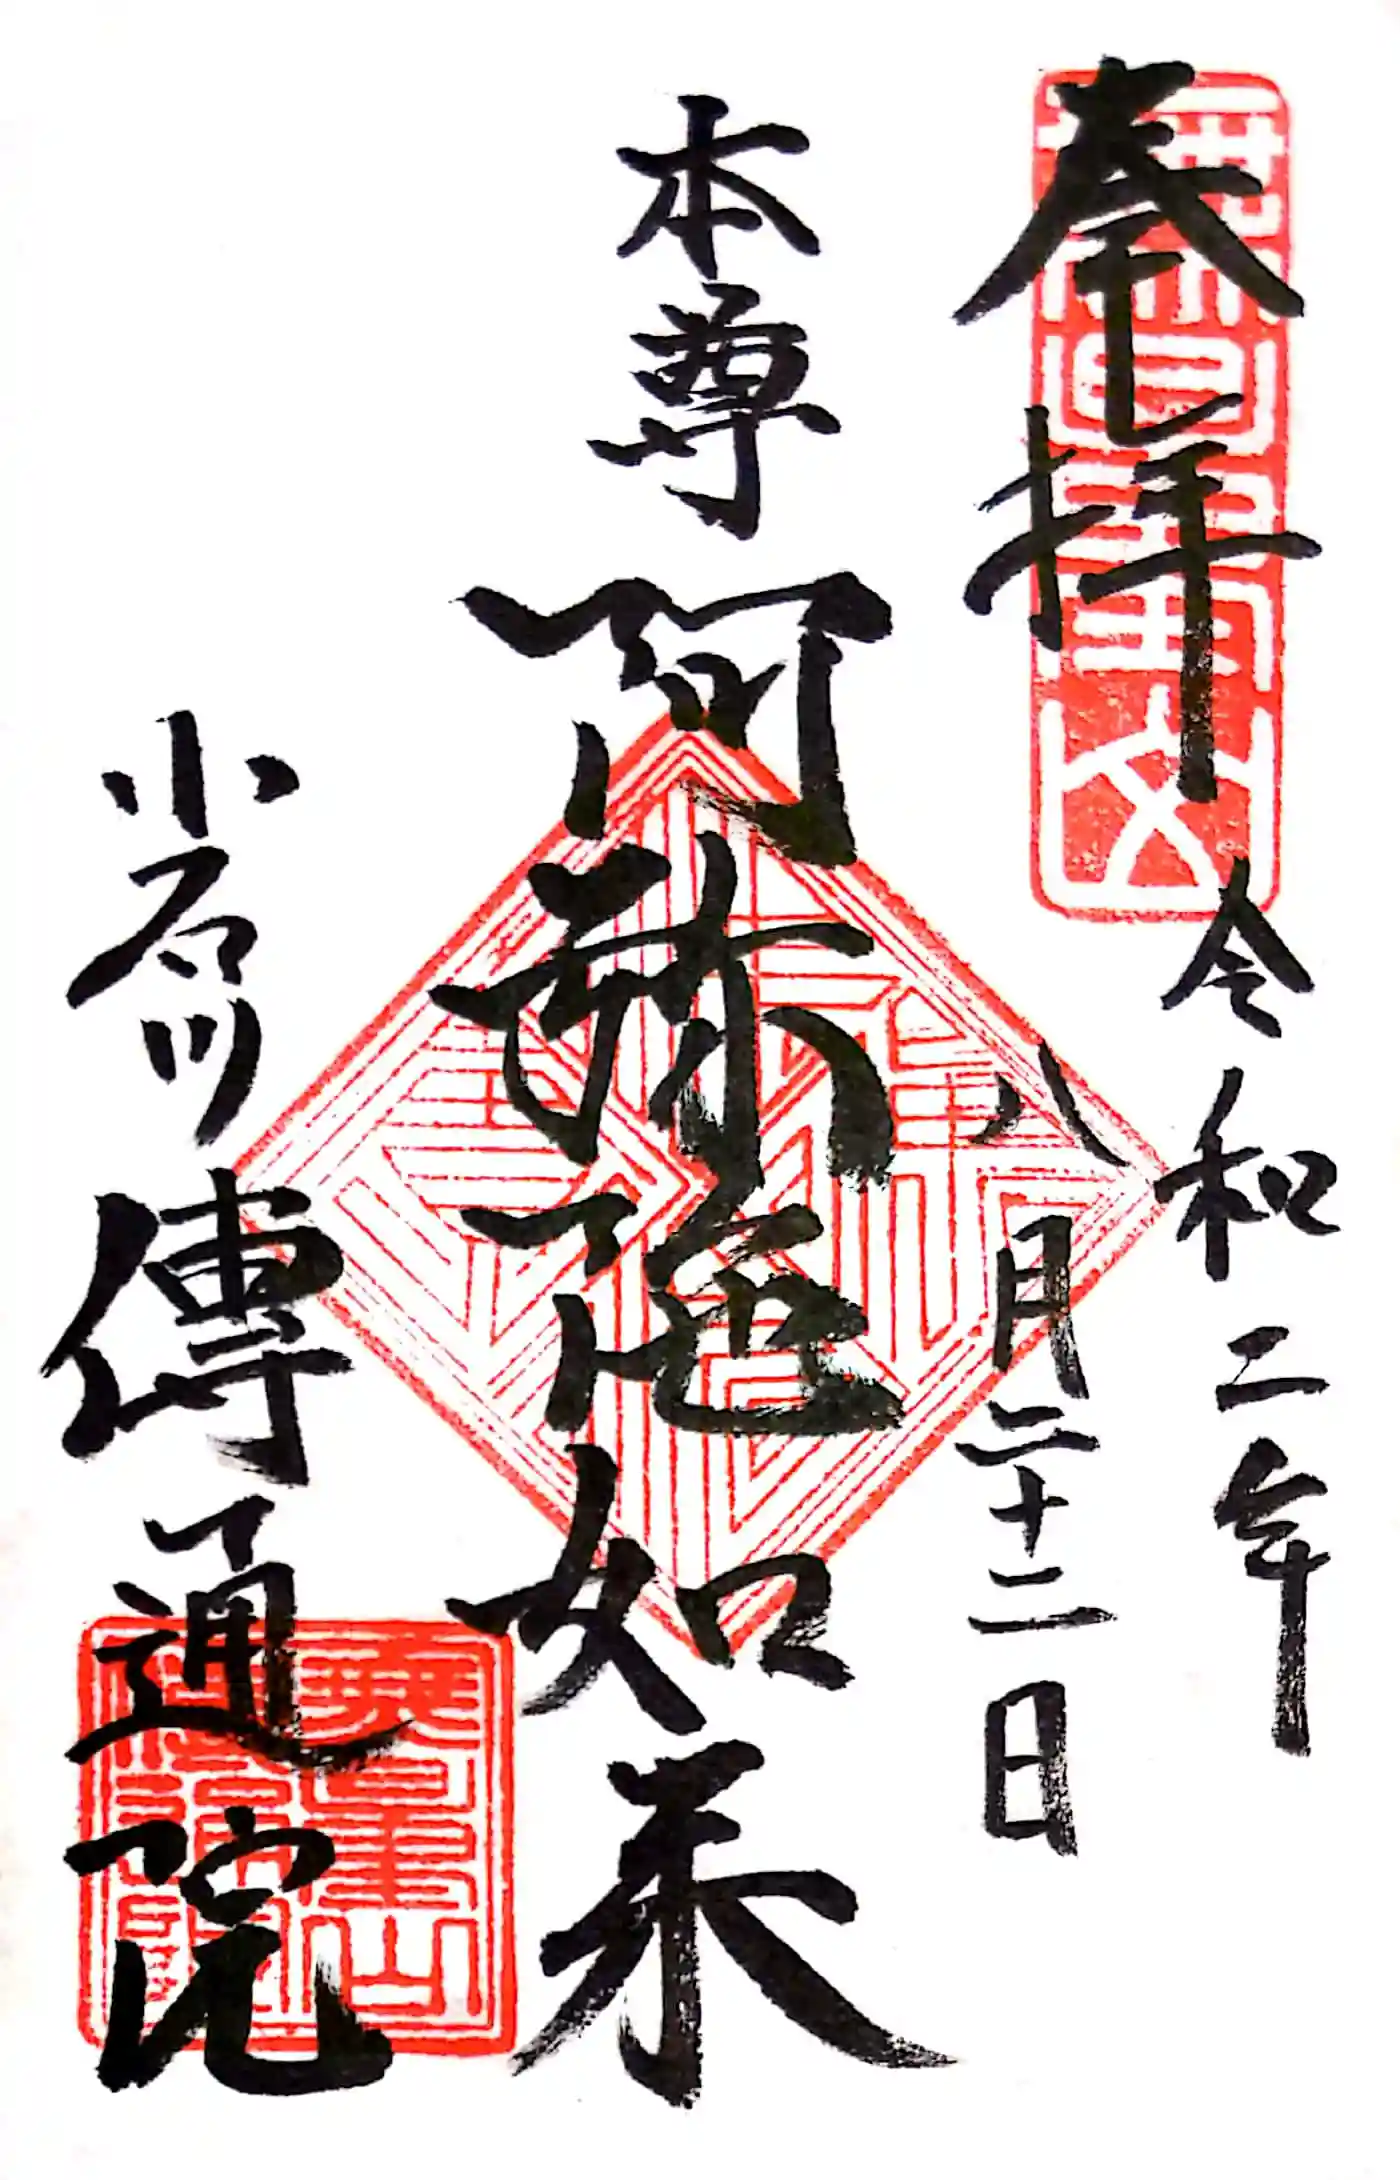 奉拝
令和二年
八月二十二日
本尊 阿弥陀如来
小石川
傳通院
無量山